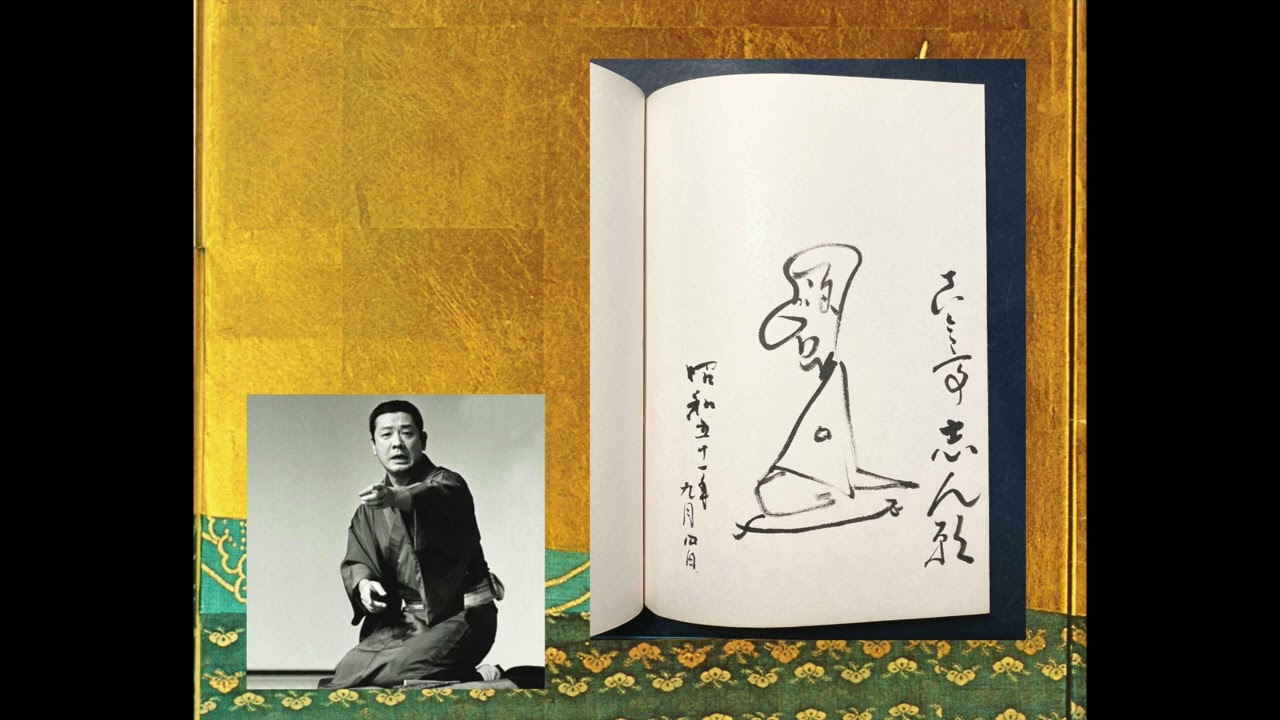 古今亭 志ん朝
昭和五十一年
九月四日